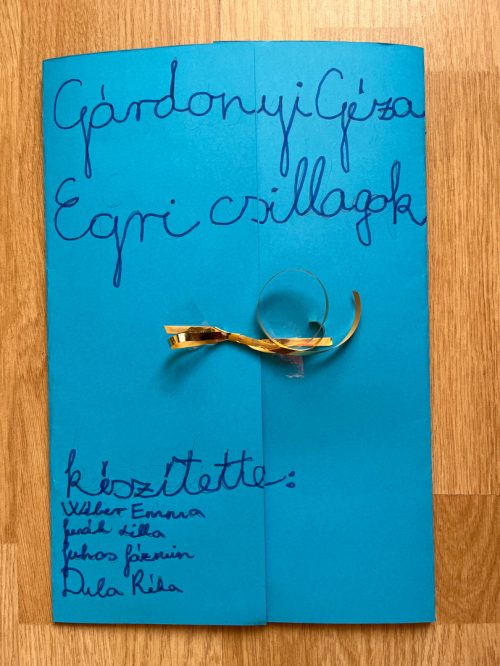 Gárdonyi Géza
Egri csillagok
készítette:
Wéber Emma
Lilla
Juhos Jázmin
Dula Réka